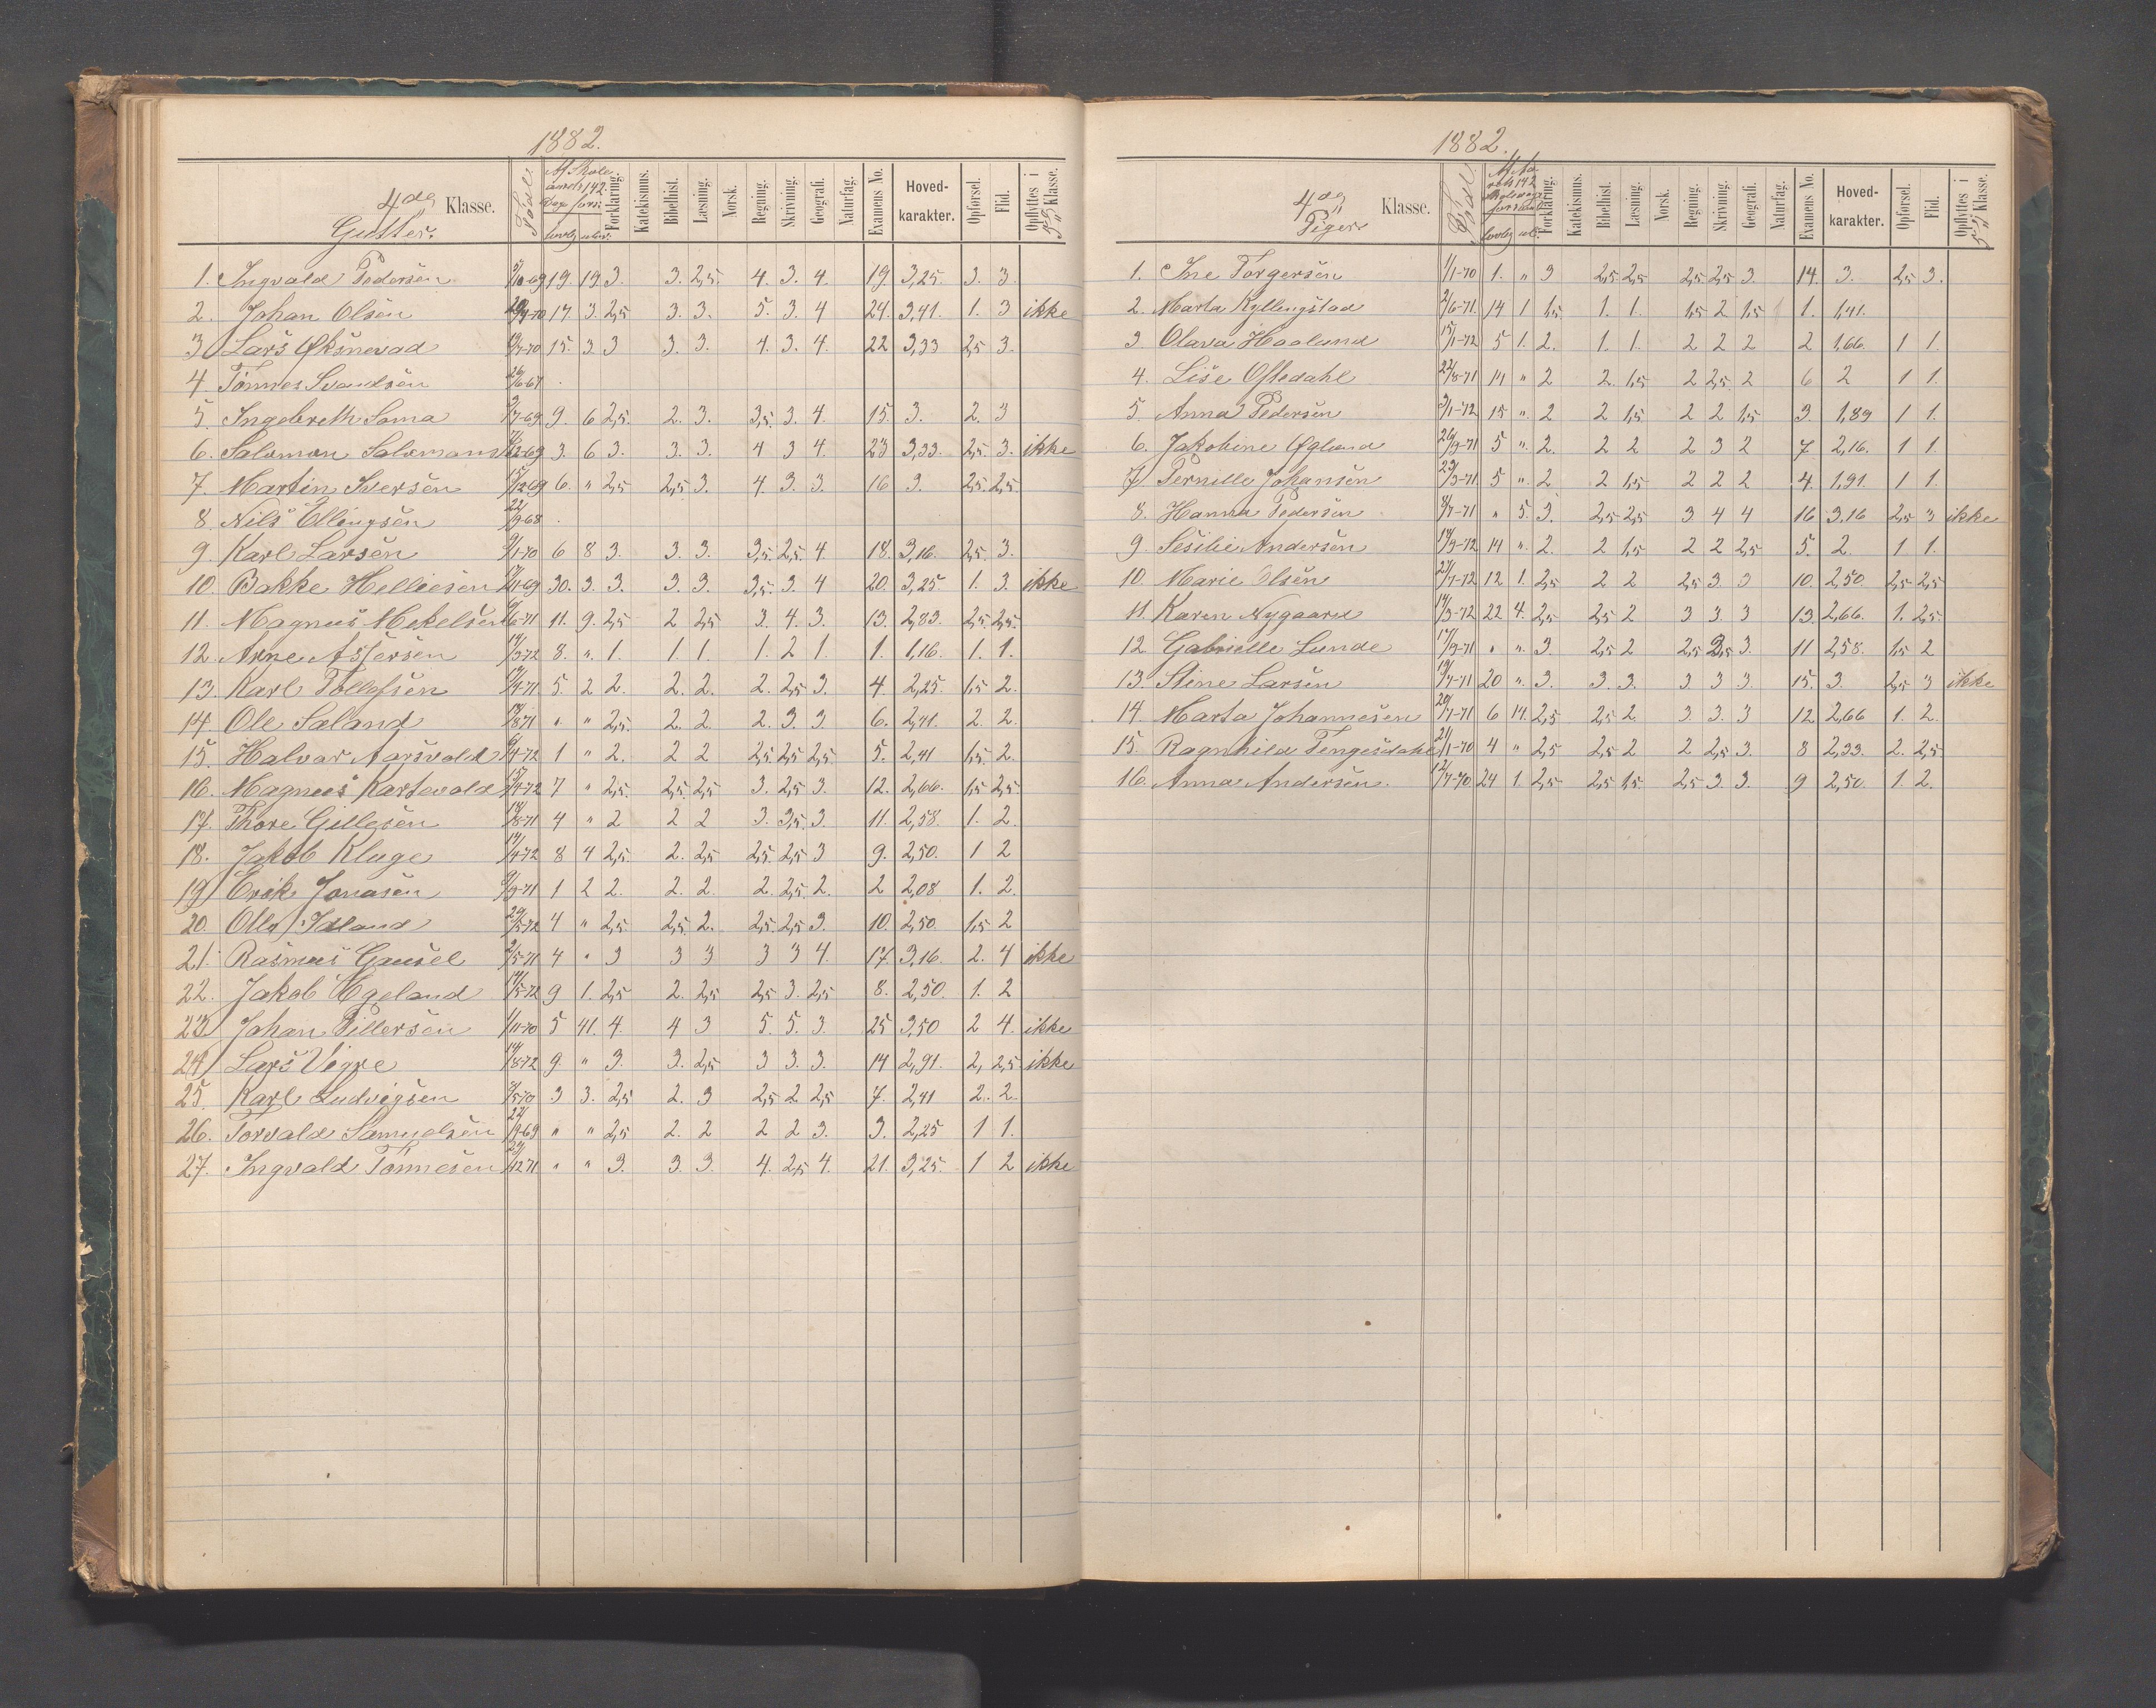 1882.
4de Klasse.
Gutter.
Født
Af Skole-
aarets 142
Dage fors.
lovlig ulov.
Forklaring.
Katekismus.
Bibelhist.
Læsning.
Norsk.
Regning.
Skrivning.
Geografi.
Naturfag.
Examens No.
Hoved-
karakter.
Opførsel.
Flid.
Opflyttes i
5te Klasse.
1. Ingvald Pedersen 19. 19. 3. 3. 2,5. 4. 3. 4. 19. 3,25. 3. 3.
2. Johan Olsen 17. 3. 2,5 3. 3. 5. 3. 4 24. 3,41. 1. 3 ikke
3. Lars Øksnevad 15. 3. 3 3. 3. 4. 3. 4. 22 3,33 2,5 3.
4. Tønnes Svendsen 26/6-67
5. Ingebreth Soma 9. 6 2,5. 2. 3. 3,5. 3. 4 15. 3. 2. 3
6. Salomon Salomons 3. 6 3. 3. 3. 4 3 4. 23 3,33. 2,5. 3. ikke
7. Martin Iversen 15/12-69 6. " 2,5 2,5 3. 4. 3. 3. 16 3. 2,5. 2,5.
8. Nils Ellingsen 22/9-68
9. Karl Larsen 6 8 3. 3. 3. 3,5. 2,5. 4 18. 3,16. 2,5. 3.
10. Bakke Helliesen 30. 3. 3. 3. 3. 3,5. 3. 4 20. 3,25. 1. 3. ikke
11. Magnus Mekelsen 11. 9. 2,5 2 2,5 3. 4. 3. 13. 2,83. 2,5 2,5.
12. Arne Asjersen 8. " 1. 1. 1. 1. 2 1. 1. 1,16. 1. 1.
13. Karl Tollefsen 5. 2 2. 2. 2. 2. 2,5 3. 4. 2,25. 1,5 2.
14. Ole Saland " " 2,5. 2. 2. 2. 3. 3 6. 2,41. 2. 2.
15. Halvar Aarsvold 1 " 2. 2 2 2,5. 2,5 2,5 5. 2,41 1,5. 2.
16. Magnus Kartevold 15/4-72 7 " 2,5. 2,5. 2,5 3. 2,5 3. 12. 2,66. 1,5 2,5
17. Thore Gillesen 4 " 2 2 2 3. 3,5. 3. 11. 2,58. 1. 2.
18. Jakob Kluge 8 4 2,5. 2. 2,5 2,5. 2,5 3 9. 2,50. 1 2
19. Erik Jonasen 1 2 2. 2. 2. 2. 2,5. 2. 2 2,08 1. 2.
20. Olla Idland 4 " 2,5 2,5 2. 2,5. 2,5 3. 10. 2,50. 1,5 2
21. Rasmus Gausel 4 " 3 3 3 3 3 4. 17. 3,16. 2. 4 ikke
22. Jakob Egeland 9 1. 2,5 2. 2,5 2,5 3. 2,5 8. 2,50. 1. 2
23. Johan Pillersen 1/11-70 5 41. 4. 4 3 5. 5. 3. 25 3,50 2 4. ikke
24. Lars Vigre 9. " 3. 3. 2,5 3 3. 3. 14 2,91. 2, 2,5 ikke
25. Karl Ludvigsen 3 3. 2,5 2. 3 2,5 2 2,5 7. 2,41 2. 2.
26. Torvald Samuelsen 27/9-69 " " 2,5 2. 2 2 2 3. 3. 2,25 1 1.
27. Ingvald Tønnesen " " 3. 3. 3. 4. 2,5 4. 21. 3,25. 1 2 ikke
1882.
4de Klasse.
Piger
Født
Forklaring.
Katekismus.
Bibelhist.
Læsning.
Norsk.
Regning.
Skrivning.
Geografi.
Naturfag.
Examens No.
Hoved-
karakter.
Opførsel.
Flid.
Opflyttes i
5te Klasse.
1. Ine Torgersen 1/1-70 1. " 3 2,5 2,5 2,5 2,5 3. 14. 3. 2,5 3.
2. Marta Kyllingstad 2/6-71 14 1 1,5. 1. 1. 1,5 2 1,5 1. 1,41.
3. Olava Haaland 15/1-72 5 1. 2. 1. 1. 2 2 2 2 1,66. 1 1.
4. Lise Oftedahl 22/8-71 14 " 2 2. 1,5 2 2,5. 2 6 2 1 1.
5. Anna Pedersen 3/1-72 15 " 2 2 1,5 2 2 1,5 3. 1,89 1 1.
6. Jakobine Øglend 26/9-71 5 " 2. 2 2 2 3 2 7. 2,16. 1 1.
7. Pernille Johansen 23/3-71 5 " 2 2 1,5 2 2 2 4. 1,91. 1 1.
8. Hanna Pedersen 8/7-71 " 5. 3. 2,5 2,5 3 4 4 16 3,16 2,5 3 ikke
9. Sesilie Andersen 14/9-72 14 " 2. 2 1,5 2 2 2,5 5. 2. 1 1.
10. Marie Olsen 27/7-72 12 1. 2,5 2 2 2,5 3. 3 10. 2,50. 2,5 2,5
11. Karen Nygaard 14/3-72 22 4. 2,5 2,5 2 3 3. 3 13. 2,66. 1. 2,5.
12. Gabrielle Lunde 17/9-71 " " 3. 2,5 2 2,5 2,5 3. 11 2,58. 1,5 2
13. Stine Larsen 19/4-71 20 " 3. 3. 3. 3 3 3. 15. 3. 2,5 3 ikke
14. Marta Johannesen 20/7-71 6 14. 2,5 2,5 2. 3. 3. 3 12 2,66 1. 2.
15. Ragnhild Tengesdahl 21/1-70 4 " 2,5 2,5 2 2 2,5 3. 8 2,33. 2. 2,5
16. Anna Andersen. 12/7-70 24 1. 2,5 2,5 1,5. 2,5 3. 3. 9 2,50. 1. 2.